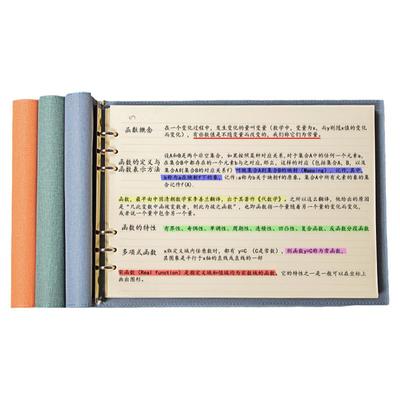 函数概念
在一个变化过程中，发生变化的量叫变量（数学中，变量为x，而y则随x值的变化
而变化），有些数值是不随变量而改变的，我们称它们为常量。
函数的定义与
函数表示方法
设A和B是两个非空集合，如果按照某种对应关系，对于集合A中的任何一个元素a，
在集合B中都存在的一个元素b与之对应，那么，这样的对应（包括集合A，B，以及
集合A到集合B的对应关系f）叫做集合A到集合B的映射（Mapping），记作。其中，
b称为a在映射f下的象，记作:a称为b关于映射f的原象。集合A中所有元素的象的集
合记作f(A)。
函数，最早由中国清朝数学家李善兰翻译，出于其著作《代数学》。之所以这么翻译，他给出的原因
是“凡此变量中函彼变量者，则此为彼之函数”，也即函数指一个量随着另一个量的变化而变化，
或者说一个量中包含另一个量。
函数的特性
有界性、奇偶性、单调性、周期性、连续性、凹凸性、复合函数、反函数分段函数
多项式函数
x取定义域内任意数时，都有 y=C（C是常数），则函数y=C称为常函数，
其图象是平行于x轴的直线或直线的一部
实函数（Real function）是指定义域和值域均为实数域的函数。它的特性之一是一般可以在坐标上
画出图形。